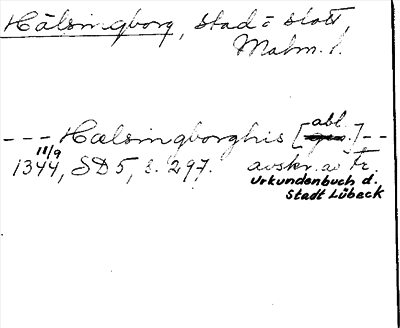 Hälsingborg, stad o slott,
Malm. l.
--- Hælsingborghis [abl.]--
11/9
1344, SD 5, s. 297. avskr. av tr.
Urkundenbuch d.
Stadt Lübeck